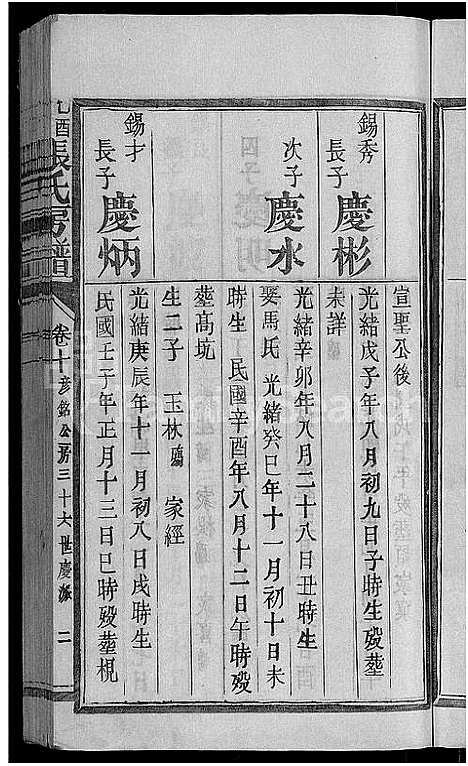 宣聖公後
錫秀
長子
慶彬
光緒戊子年八月初九日子時生歿塟
未詳
次子
慶水
光緒辛卯年八月二十八日丑時生
娶馬氏 光緒癸巳年十一月初十日未
時生 民國辛酉年八月十二日午時歿
塟高坑
生二子 玉林殤 家經
錫才
長子
慶炳
光緒庚辰年十一月初八日戌時生
民國壬子年正月十三日巳時歿塟梘
乙酉張氏房譜
卷十 彥銘公房三十六世慶派 二